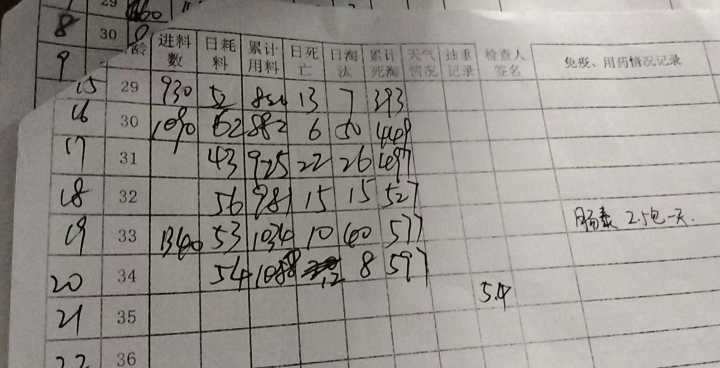 29 660
8 30
9 龄 进料数 日耗料 累计用料 日死亡 日淘汰 累计死淘 天气情况 抽重记录 检查人签名 免疫、用药情况记录
15 29 930 52 13 7 393
16 30 1090 62 882 6 50 449
17 31 43 925 22 26 497
18 32 56 981 15 15 527
19 33 1340 53 1034 10 40 577 肠毒 2.5包一天.
20 34 54 1088 12 8 597
5.4
21 35
22 36